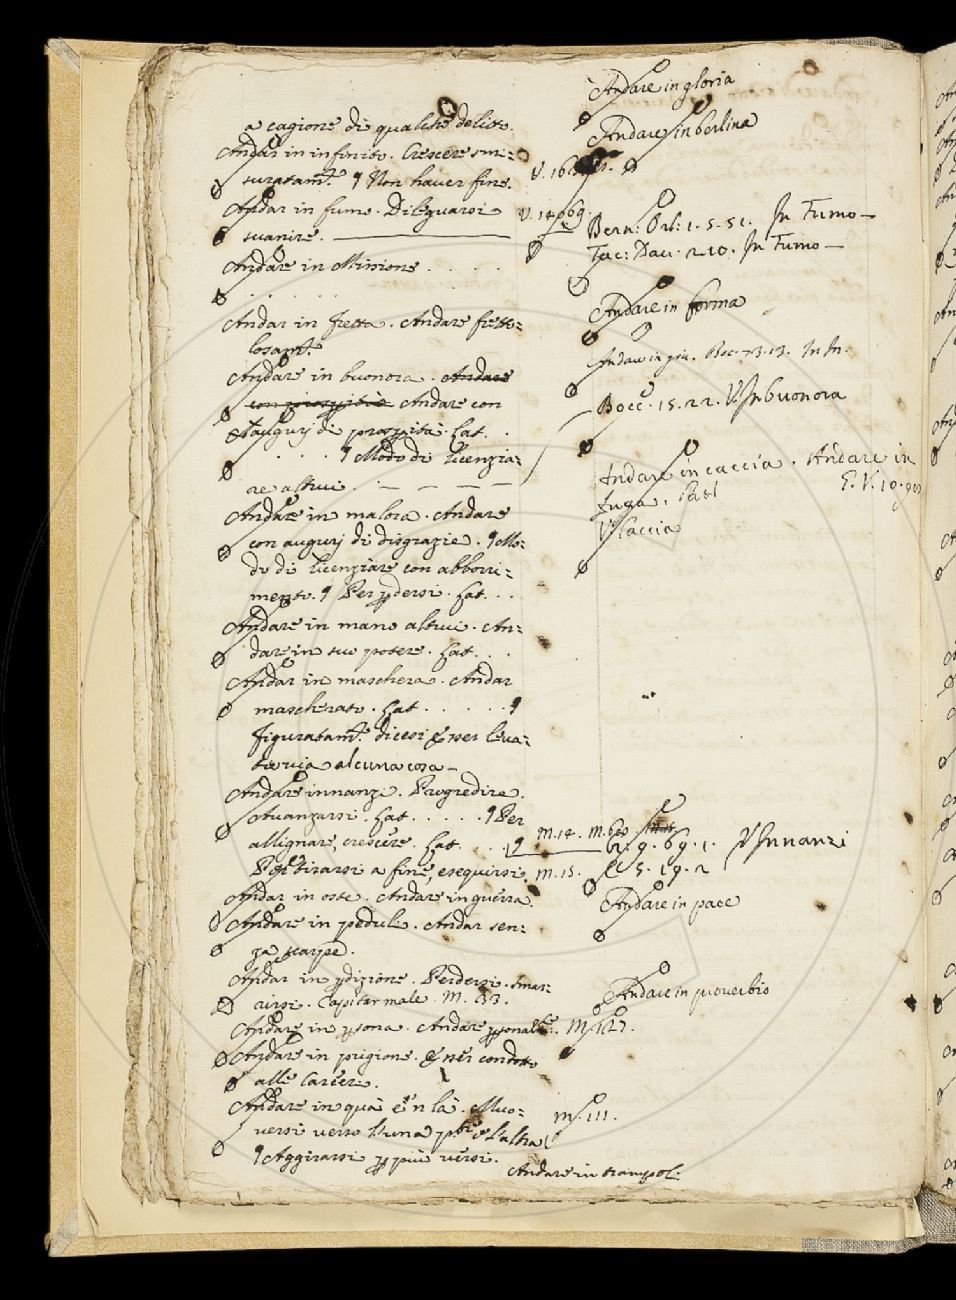 a cagione di qualche delitto.
Andar in infinito. Crescere smi=
suratam.te ¶ Non haver fine.
Andar in fumo. Dileguarsi
svanire.
Andare in Missione . . . .
. . . . . .
Andar in fretta. Andare fretto=
losam.te
Andare in buonora. Andare
con prosperità Andare con
augurj di prosperità. Lat. .
. . . . ¶ Modo di licenzia=
re altrui.
Andare in malora. Andare
con augurj di disgrazie. ¶ Mo=
do di licenziare con abborri=
mento. ¶ Per perdersi. Lat. . .
Andare in mano altrui. An=
dare in suo potere. Lat. . .
Andar in maschera. Andar
mascherato. Lat . . . . . ¶
figuratam.te dicesi esser leva=
ta via alcuna cosa
Andare innanzi. Progredire.
Avanzarsi. Lat. . . . . ¶ Per
allignare, crescere. Lat. . . . ¶
Per tirarsi a fine, eseguirsi. m. 15.
Andar in oste. Andare in guerra.
Andare in peduli. Andar sen=
za scarpe.
Andar in perdizione. Perdersi. Smar=
rirsi. Capitar male. M. 33.
Andare in persona. Andare personalm.te M. 127.
Andare in prigione. Esser condotto
alle Carceri.
Andare in quà e 'n là. Muo=
versi verso l'una parte e l'altra m. 111.
¶ Aggirarsi per più versi.
Andare in trampol.
Andare in gloria
Andare in berlina
V. 1469.
Bern: Orl: 1. 5. 51. In Fumo
Tac: Dav. 210. In Fumo
Andare in forma
Andare in giu. Boc. 73. 13. In In.
Bocc. 15. 22. V. In buonora
Andare in caccia. Andare in
fuga. G. V. 10.
V. Caccia
m. 14. 2. 9. 69. 1. V. Innanzi
e 5. 19. 2
Andare in pace
Andare in proverbio